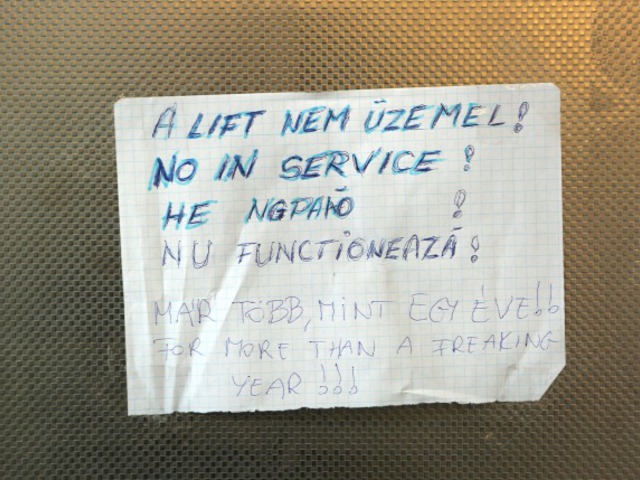 A LIFT NEM ÜZEMEL!
NO IN SERVICE!
HE NGPAЮ !
NU FUNCTIONEAZĂ!
MÁR TÖBB, MINT EGY ÉVE!!
FOR MORE THAN A FREAKING
YEAR !!!